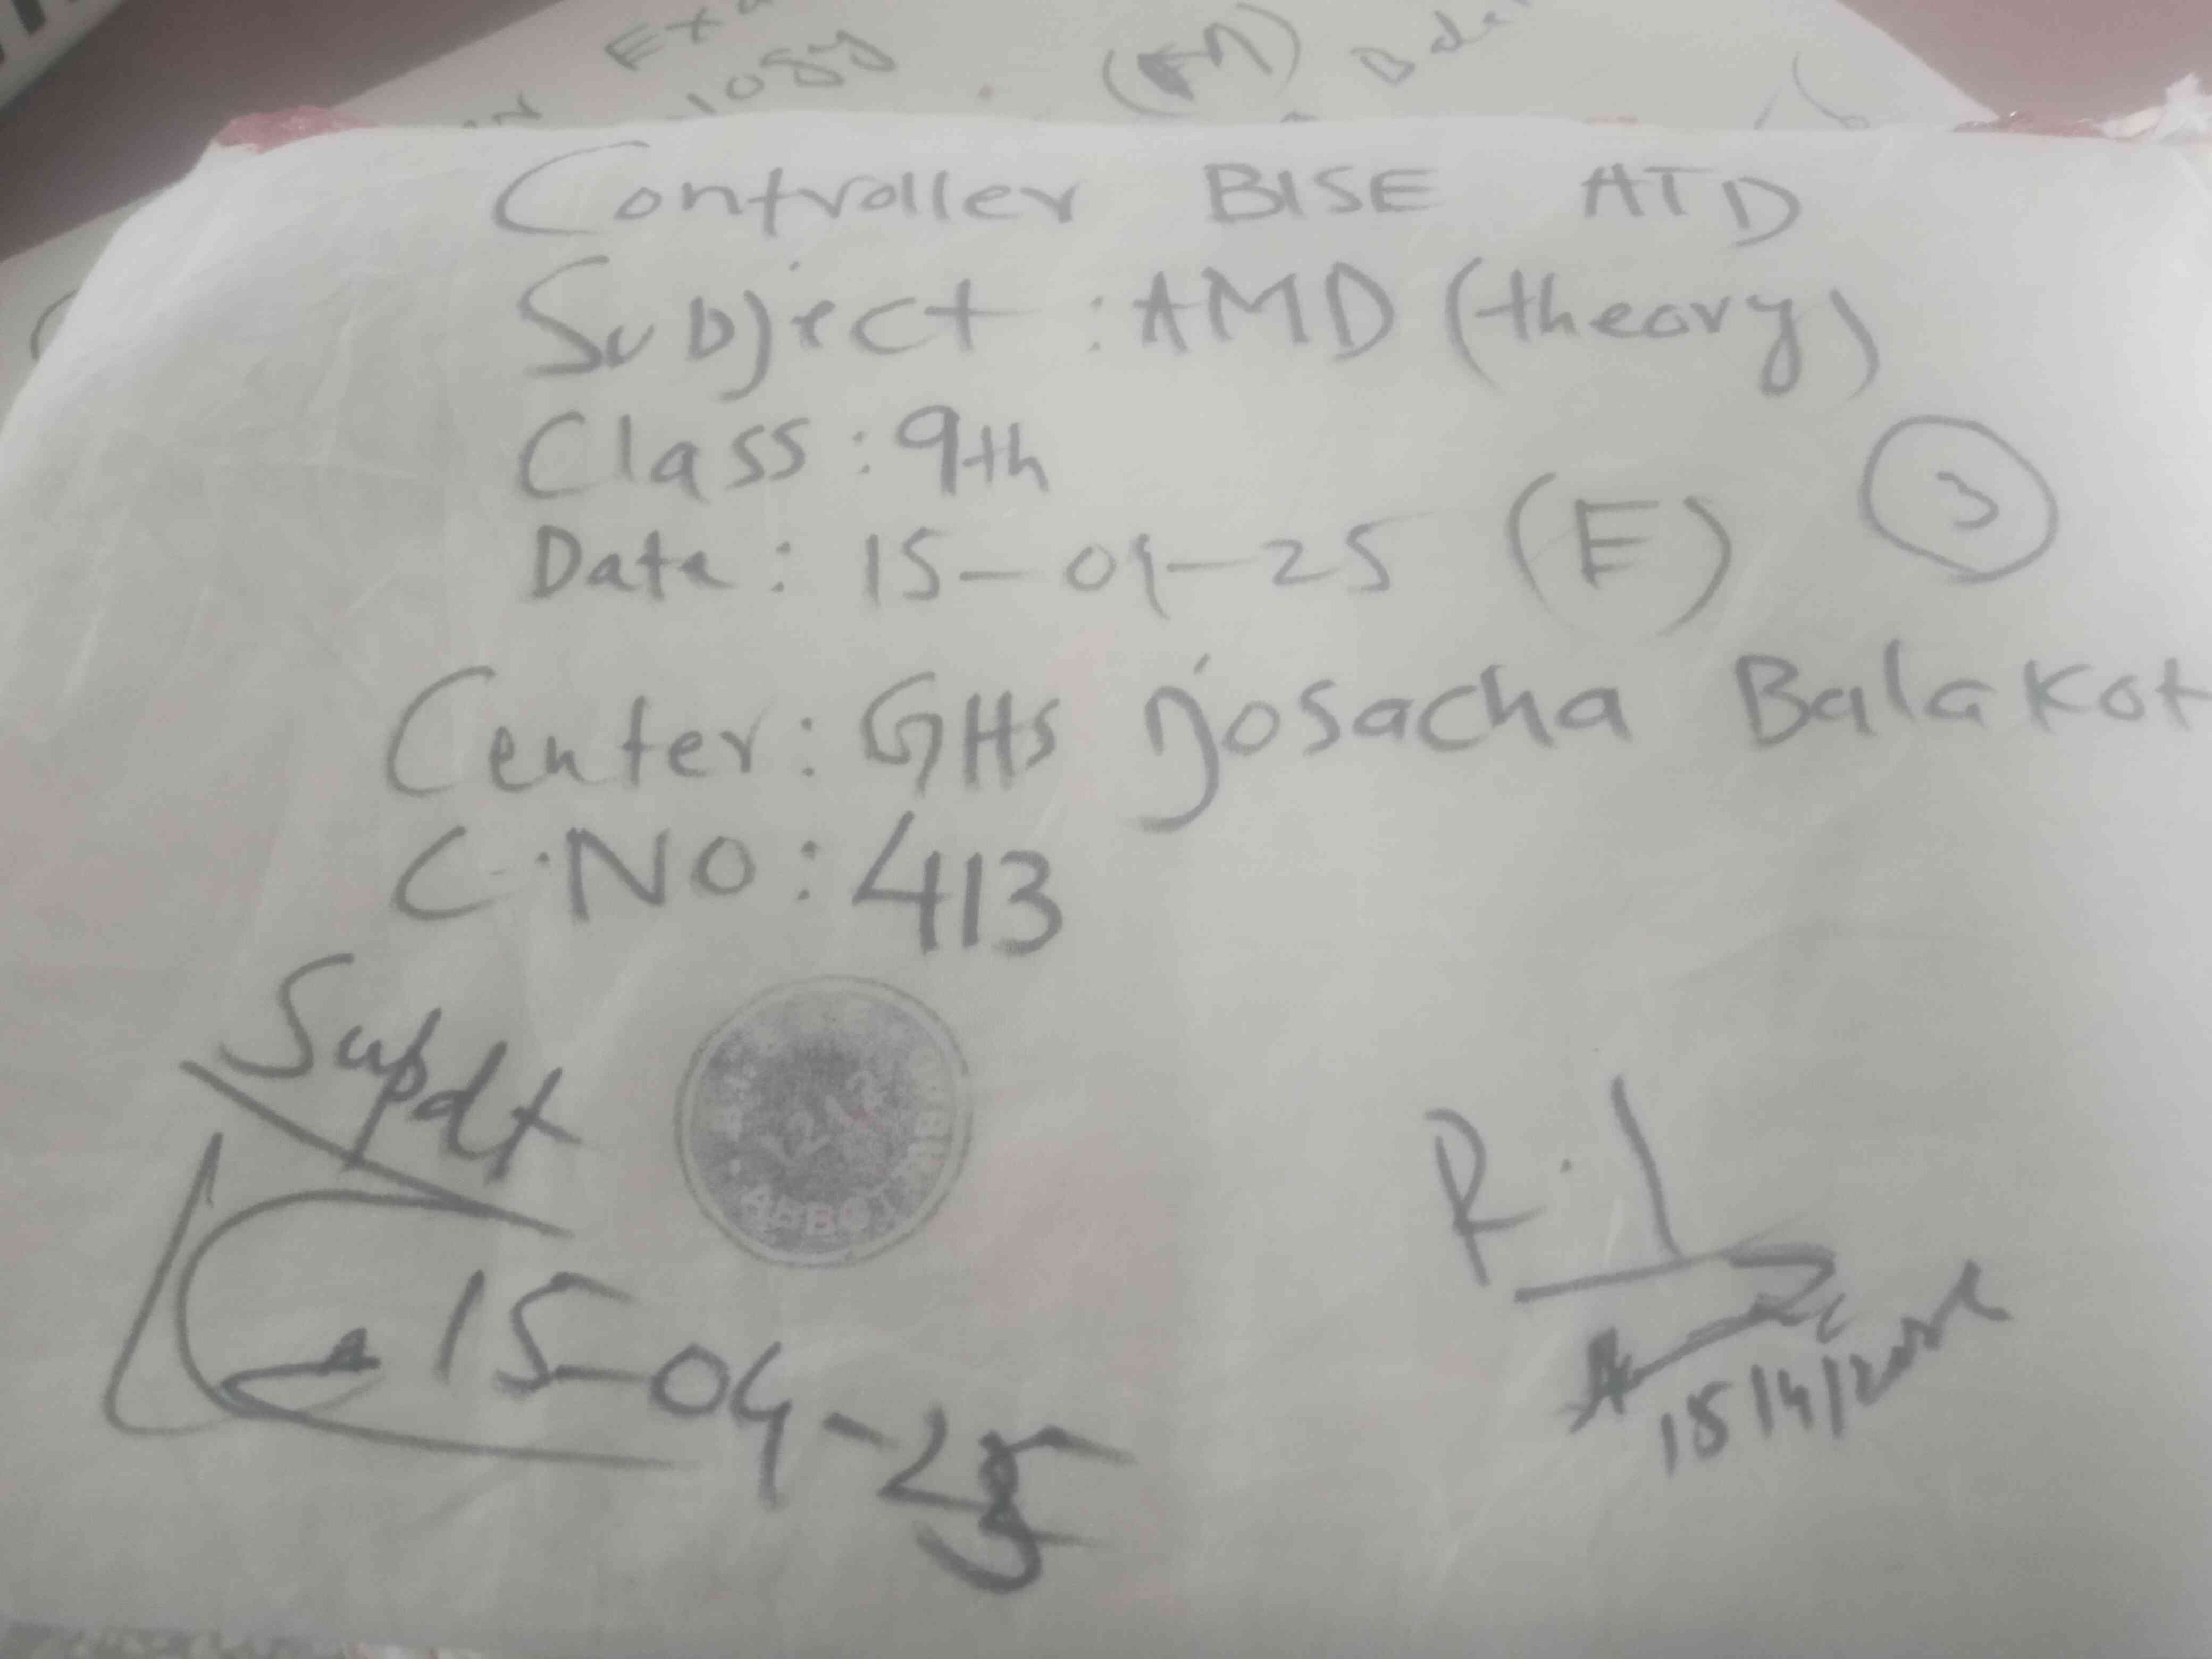 Controller BISE ATD
Subject : AMD (theory)
Class : 9th
Date : 15-04-25 (E) 3
Center : GHS josacha Balakot
C.NO : 413
Supdt
15-04-25
R.I
15/4/2025